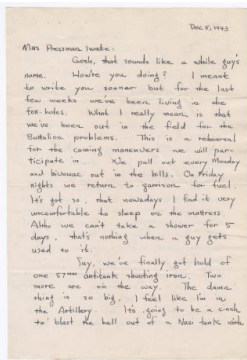 Dec 5, 1943
Miss Pressman Iwata:
Gosh, that sounds like a white guy's
name. How're you doing? I meant
to write you sooner but for the last
few weeks we've been living in the
fox-holes. What I really mean is that
we've been out in the field for the
Battalion problems. This is a rehearsal
for the coming maneuvers we will par-
ticipate in. We pull out every Monday
and bivouac out in the hills. On Friday
nights we return to garrison for fuel.
It's got so, that nowadays I find it very
uncomfortable to sleep on the mattress.
Altho we can't take a shower for 5
days, that's nothing when a guy gets
used to it.
Say, we've finally got hold of
one 57mm antitank shooting iron. Two
more are on the way. The damn
thing is so big, I feel like I'm in
the Artillery. It's going to be a cinch
to blast the hell out of a Nazi tank with